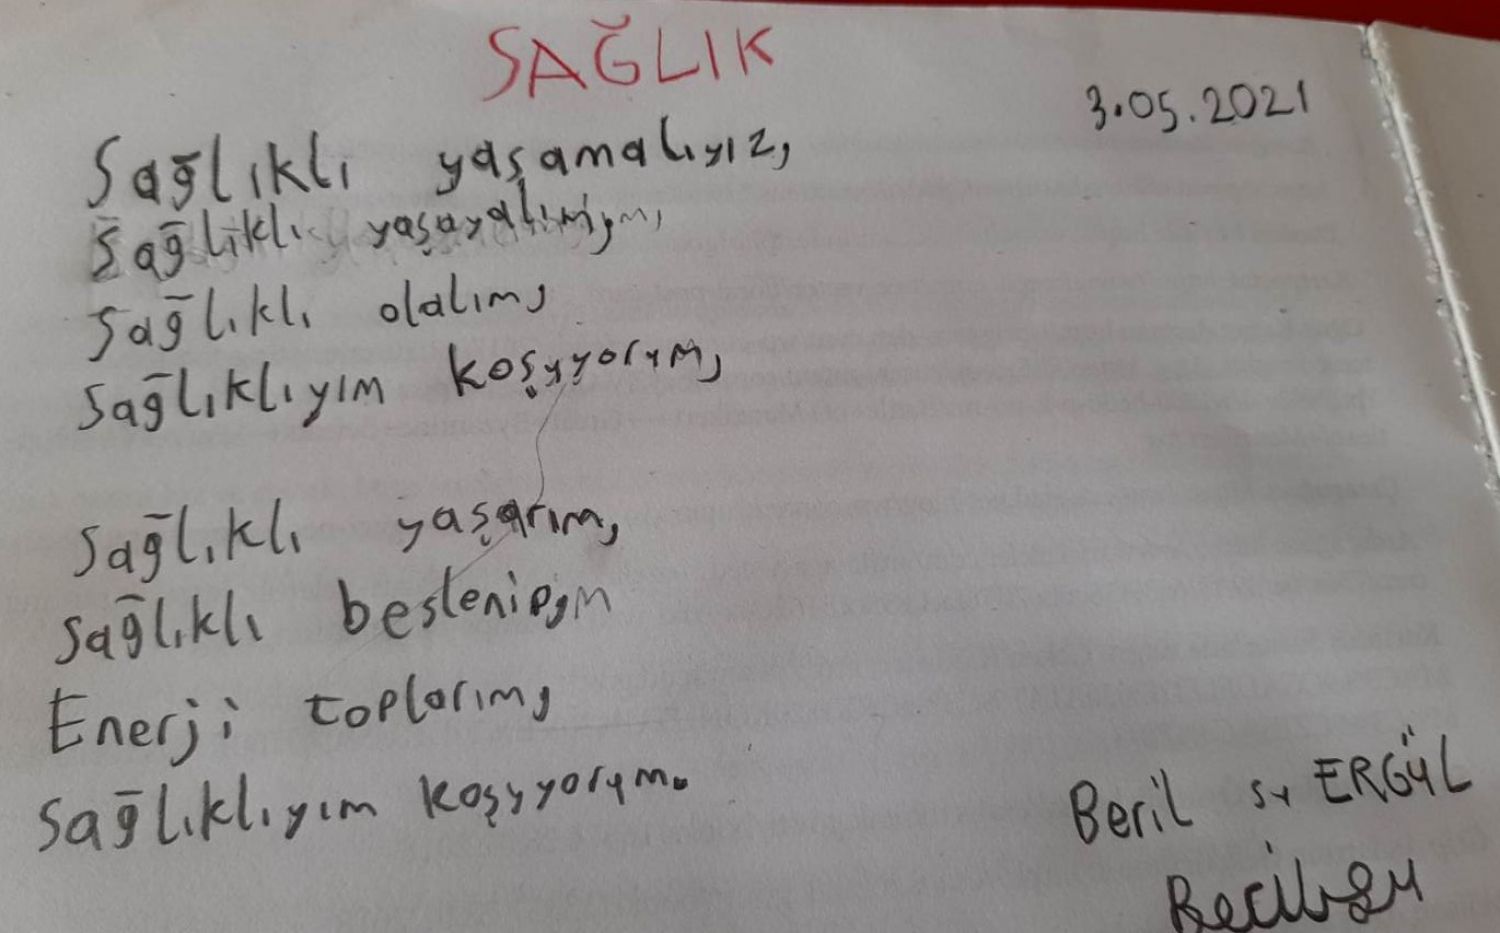 SAĞLIK
3.05.2021
Sağlıklı yaşamalıyız,
Sağlıklı
Sağlıklı olalım,
Sağlıklıyım koşuyorum,
Sağlıklı yaşarım,
Sağlıklı
Enerji toplarım,
Sağlıklıyım koşuyorum.
Beril su ERGÜL